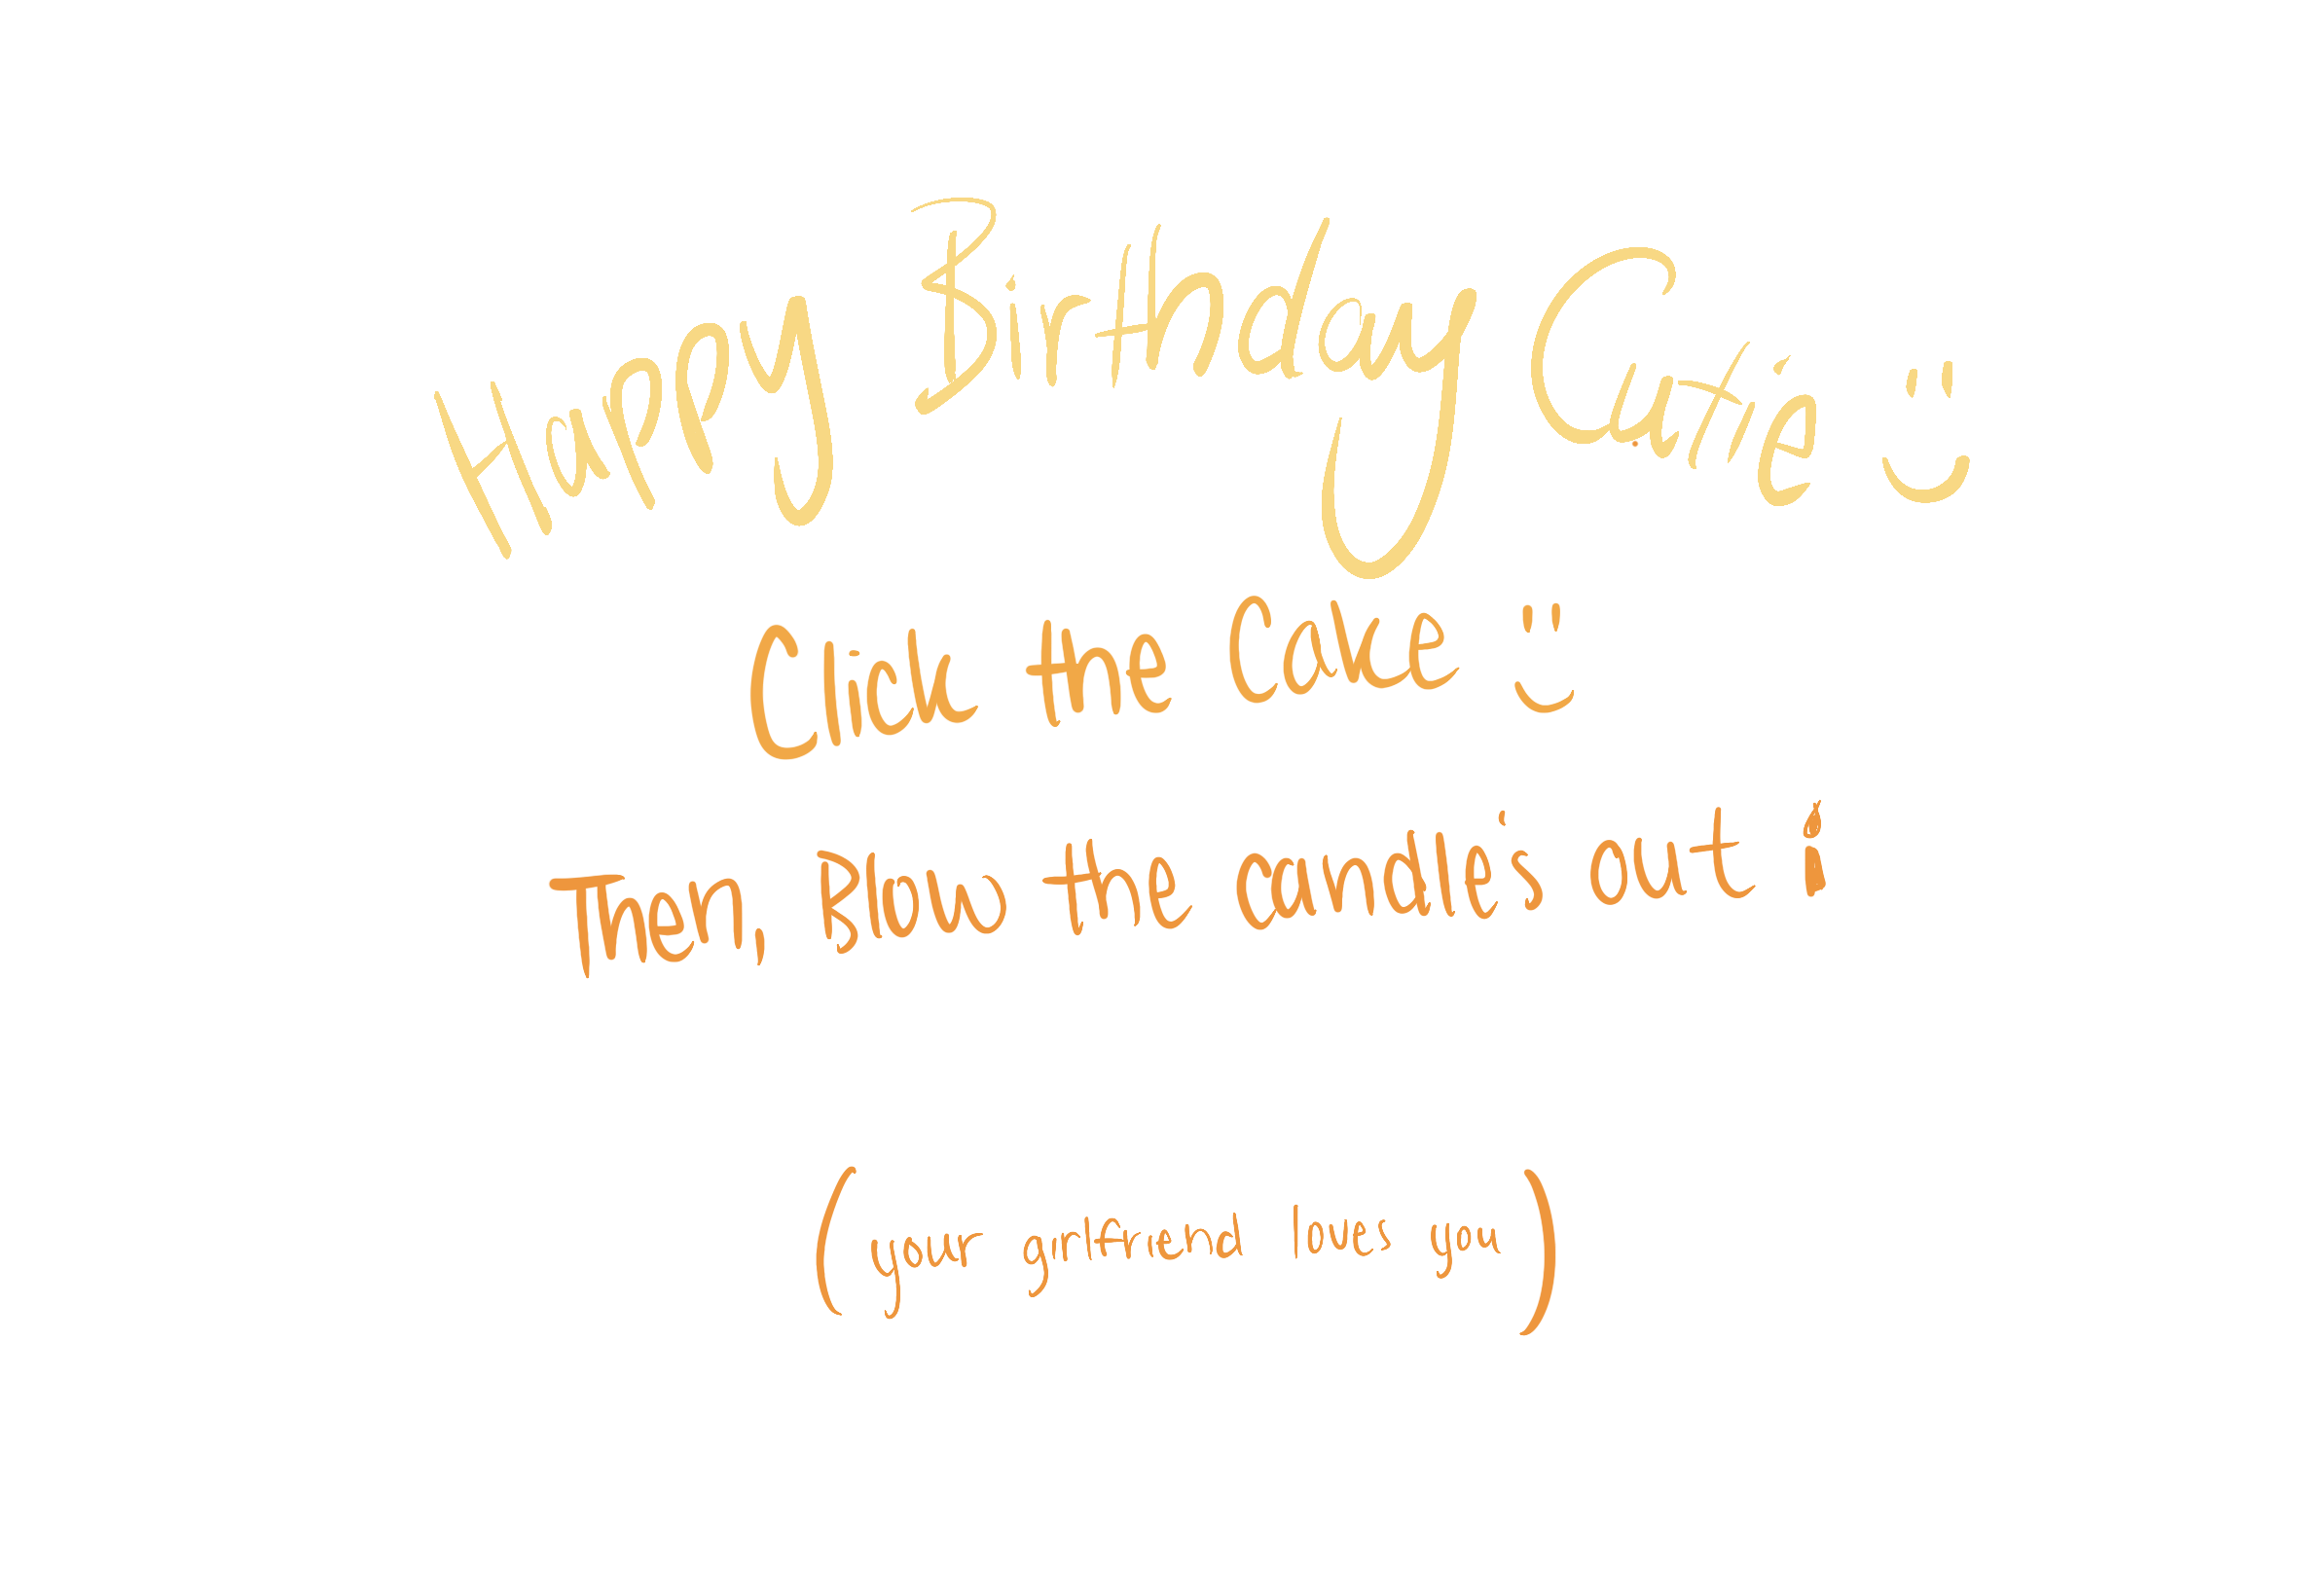 Happy Birthday Cutie
Click the Cake
Then, Blow the candle's out
(your girlfriend loves you)